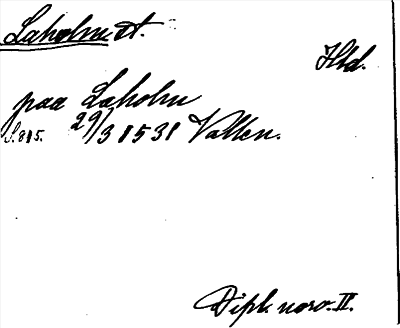 Laholm st.
Hld.
paa Laholm
S. 815. 29/3 1531 Vallen.
Dipl. norv. II.